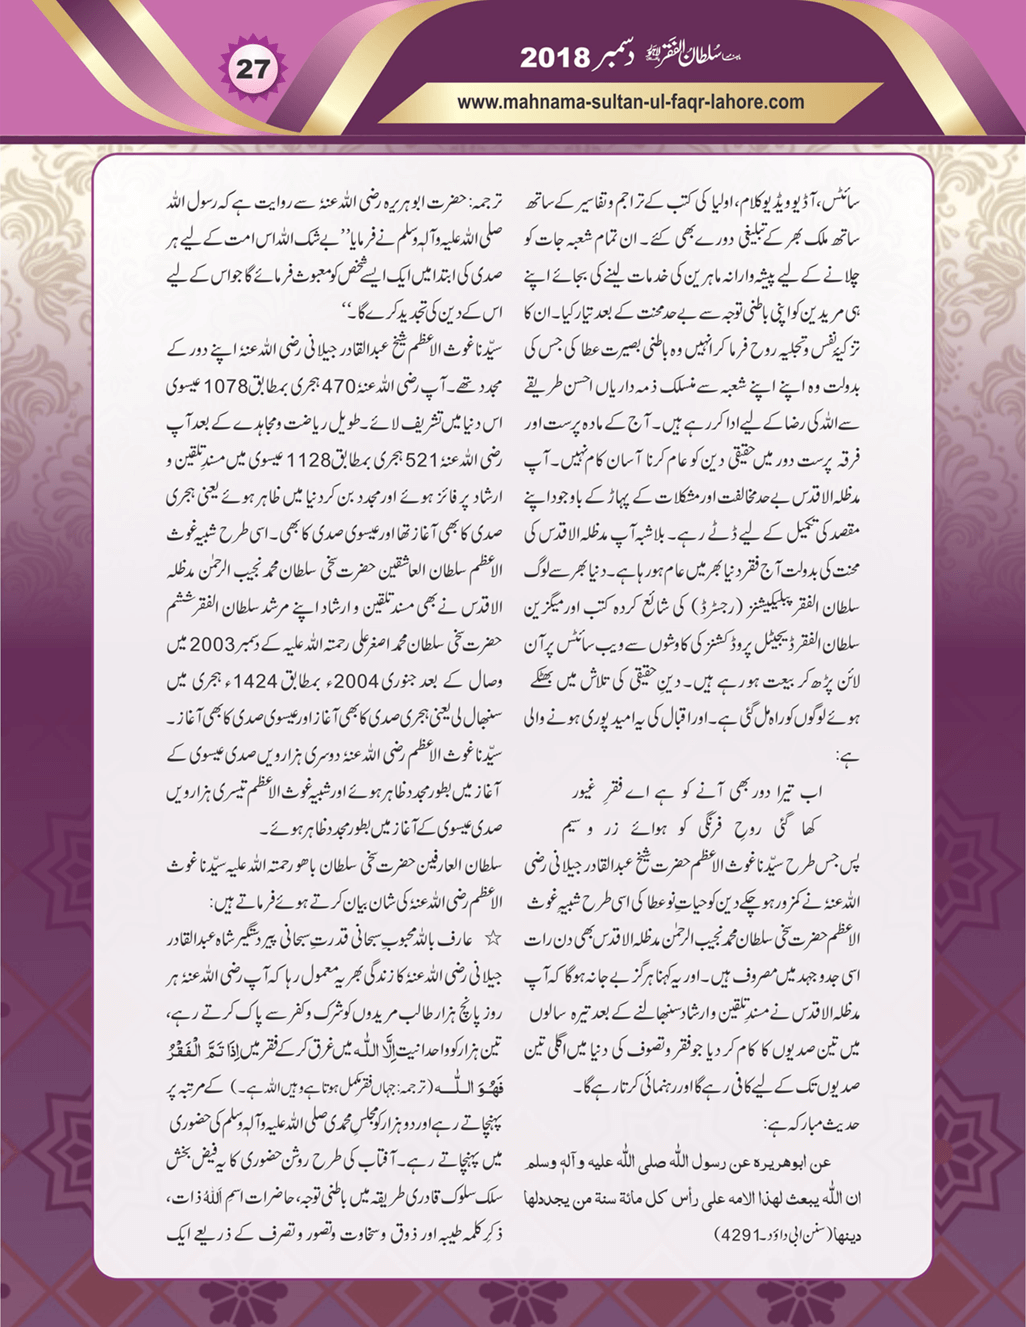 27
ماہنامہ سُلطان الفَقر ﷺ دسمبر 2018
www.mahnama-sultan-ul-faqr-lahore.com
سائٹس، آڈیو ویڈیو کلام، اولیا کی کتب کے تراجم و تفاسیر کے ساتھ
ساتھ ملک بھر کے تبلیغی دورے بھی کئے۔ ان تمام شعبہ جات کو
چلانے کے لیے پیشہ وارانہ ماہرین کی خدمات لینے کی بجائے اپنے
ہی مریدین کو اپنی باطنی توجہ سے بے حد محنت کے بعد تیار کیا۔ ان کا
تزکیۂ نفس و تجلیہ روح فرما کر انہیں وہ باطنی بصیرت عطا کی جس کی
بدولت وہ اپنے اپنے شعبہ سے منسلک ذمہ داریاں احسن طریقے
سے اللہ کی رضا کے لیے ادا کر رہے ہیں۔ آج کے مادہ پرست اور
فرقہ پرست دور میں حقیقی دین کو عام کرنا آسان کام نہیں۔ آپ
مدظلہ الاقدس بے حد مخالفت اور مشکلات کے پہاڑ کے باوجود اپنے
مقصد کی تکمیل کے لیے ڈٹے رہے۔ بلاشبہ آپ مدظلہ الاقدس کی
محنت کی بدولت آج فقر دنیا بھر میں عام ہو رہا ہے۔ دنیا بھر سے لوگ
سلطان الفقر پبلیکیشنز (رجسٹرڈ) کی شائع کردہ کتب اور میگزین
سلطان الفقر ڈیجیٹل پروڈکشنز کی کاوشوں سے ویب سائٹس پر آن
لائن پڑھ کر بیعت ہو رہے ہیں۔ دینِ حقیقی کی تلاش میں بھٹکے
ہوئے لوگوں کو راہ مل گئی ہے۔ اور اقبال کی یہ امید پوری ہونے والی
ہے:
اب تیرا دور بھی آنے کو ہے اے فقرِ غیور
کھا گئی روحِ فرنگی کو ہوائے زر و سیم
پس جس طرح سیّدنا غوث الاعظم حضرت شیخ عبدالقادر جیلانی رضی
اللہ عنہٗ نے کمزور ہو چکے دین کو حیاتِ نو عطا کی اسی طرح شبیہِ غوث
الاعظم حضرت سخی سلطان محمد نجیب الرحمٰن مدظلہ الاقدس بھی دن رات
اسی جدوجہد میں مصروف ہیں۔ اور یہ کہنا ہرگز بے جا نہ ہوگا کہ آپ
مدظلہ الاقدس نے مسندِ تلقین و ارشاد سنبھالنے کے بعد تیرہ سالوں
میں تین صدیوں کا کام کر دیا جو فقر و تصوف کی دنیا میں اگلی تین
صدیوں تک کے لیے کافی رہے گا اور رہنمائی کرتا رہے گا۔
حدیث مبارکہ ہے:
عن ابوهریرہ عن رسول اللّٰہ صلی اللّٰہ علیہ وآلہٖ وسلم
ان اللّٰہ یبعث لھذا الامہ علی رأس کل مائة سنة من یجددلھا
دینھا (سنن ابی داؤد۔4291)
ترجمہ: حضرت ابو ہریرہ رضی اللہ عنہٗ سے روایت ہے کہ رسول اللہ
صلی اللہ علیہ وآلہٖ وسلم نے فرمایا ’’بے شک اللہ اس امت کے لیے ہر
صدی کی ابتدا میں ایک ایسے شخص کو مبعوث فرمائے گا جو اس کے لیے
اس کے دین کی تجدید کرے گا۔‘‘
سیّدنا غوث الاعظم شیخ عبدالقادر جیلانی رضی اللہ عنہٗ اپنے دور کے
مجدد تھے۔ آپ رضی اللہ عنہٗ 470 ہجری بمطابق 1078 عیسوی
اس دنیا میں تشریف لائے۔ طویل ریاضت و مجاہدے کے بعد آپ
رضی اللہ عنہٗ 521 ہجری بمطابق 1128 عیسوی میں مسندِ تلقین و
ارشاد پر فائز ہوئے اور مجدد بن کر دنیا میں ظاہر ہوئے یعنی ہجری
صدی کا بھی آغاز تھا اور عیسوی صدی کا بھی۔ اسی طرح شبیہ غوث
الاعظم سلطان العاشقین حضرت سخی سلطان محمد نجیب الرحمٰن مدظلہ
الاقدس نے بھی مسند تلقین و ارشاد اپنے مرشد سلطان الفقر ششم
حضرت سخی سلطان محمد اصغر علی رحمتہ اللہ علیہ کے دسمبر 2003 میں
وصال کے بعد جنوری 2004ء بمطابق 1424ء ہجری میں
سنبھال لی یعنی ہجری صدی کا بھی آغاز اور عیسوی صدی کا بھی آغاز۔
سیّدنا غوث الاعظم رضی اللہ عنہٗ دوسری ہزارویں صدی عیسوی کے
آغاز میں بطور مجدد ظاہر ہوئے اور شبیہِ غوث الاعظم تیسری ہزارویں
صدی عیسوی کے آغاز میں بطور مجدد ظاہر ہوئے۔
سلطان العارفین حضرت سخی سلطان باھو رحمتہ اللہ علیہ سیّدنا غوث
الاعظم رضی اللہ عنہٗ کی شان بیان کرتے ہوئے فرماتے ہیں:
☆ عارف باللہ محبوبِ سبحانی قدرتِ سبحانی پیر دستگیر شاہ عبدالقادر
جیلانی رضی اللہ عنہٗ کا زندگی بھر یہ معمول رہا کہ آپ رضی اللہ عنہٗ ہر
روز پانچ ہزار طالب مریدوں کو شرک و کفر سے پاک کرتے رہے،
تین ہزار کو وحدانیت اِلَّا اللّٰہ میں غرق کر کے فقر میں اِذَا تَمَّ الْفَقْرُ
فَھُوَ اللّٰہ (ترجمہ: جہاں فقر مکمل ہوتا ہے وہیں اللہ ہے۔) کے مرتبہ پر
پہنچاتے رہے اور دو ہزار کو مجلسِ محمدی صلی اللہ علیہ وآلہٖ وسلم کی حضوری
میں پہنچاتے رہے۔ آفتاب کی طرح روشن حضوری کا یہ فیض بخش
سلک سلوک قادری طریقہ میں باطنی توجہ، حاضرات اسم اَللّٰهُ ذات،
ذکرِ کلمہ طیبہ اور ذوق و سخاوت و تصور و تصرف کے ذریعے ایک